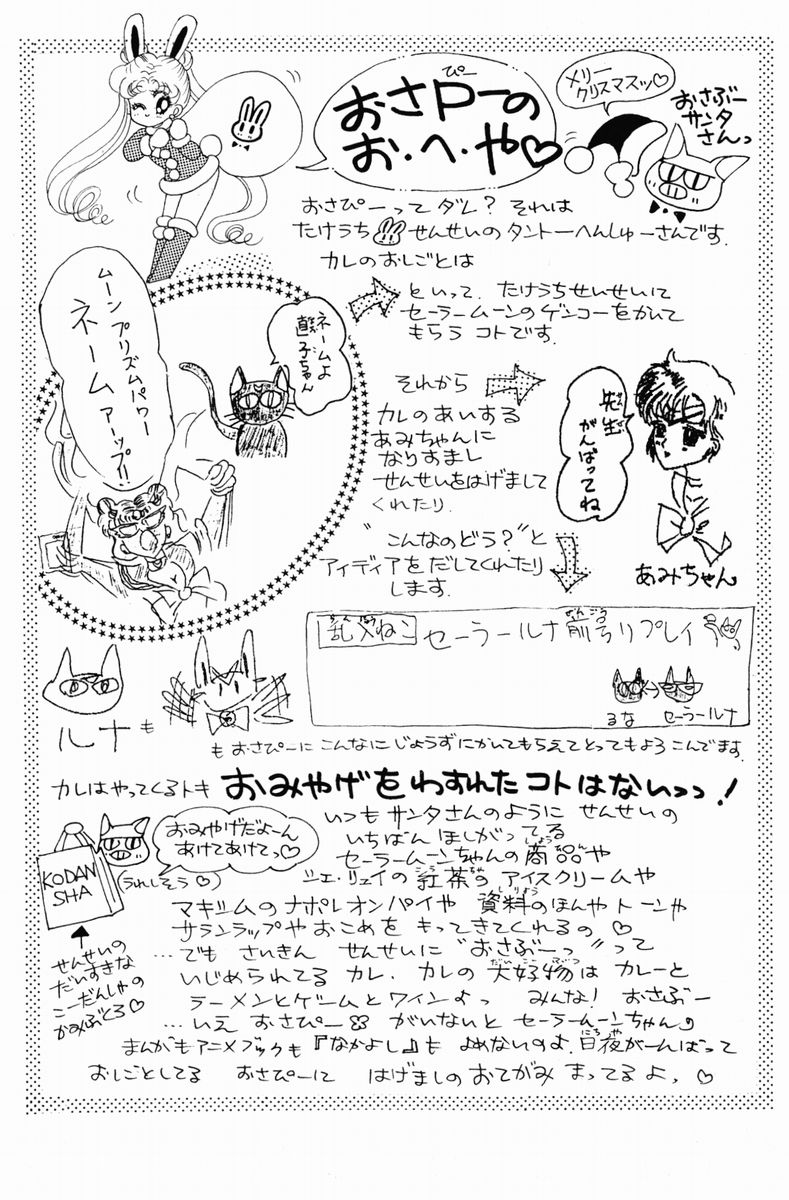 おさPーの
ぴー
お・へ・や♡
メリー
クリスマスッ♡
おさぶー
サンタ
さんっ
おさぴーってダレ？それは
たけうち せんせいのタントーへんしゅーさんです.
カレのおしごとは
ムーンプリズムパワー
ネーム
アーップ!!
ネームよ
直子ちゃん
といって、たけうちせんせいに
セーラームーンのゲンコーをかいて
もらうコトです.
それから
カレのあいする
あみちゃんに
なりすまし
せんせいをはげまして
くれたり.
先生
がんばってね
あみちゃん
"こんなのどう？"と
アイディアをだしてくれたり
します.
乱入ねこ セーラールナ前号リプレイ
るな
セーラールナ
ルナも
もおさぴーにこんなにじょうずにかいてもらえてとってもよろこんでます.
カレはやってくるトキ おみやげをわすれたコトはないっっ！
おみやげだよーん
あけてあけてっ♡
(うれしそう♡)
KODAN
SHA
せんせいの
だいすきな
こーだんしゃの
かみぶくろ♡
いつもサンタさんのように せんせいの
いちばん ほしがってる
セーラームーンちゃんの商品や
紅茶のアイスクリームや
マキシムのナポレオンパイや 資料のほんや トーンや
サランラップや おこめを もってきてくれるの ♡
…でも さいきん せんせいに"おさぶーっ"って
いじめられてるカレ. カレの大好物はカレーと
ラーメンとゲームとワインよっ みんな！ おさぶー
…いえ おさぴー がいないと セーラームーンちゃん♪
まんがもアニメブックも『なかよし』も よめないのよ.日夜がーんばって
おしごとしてる おさぴーに はげましのおてがみ まってるよっ ♡